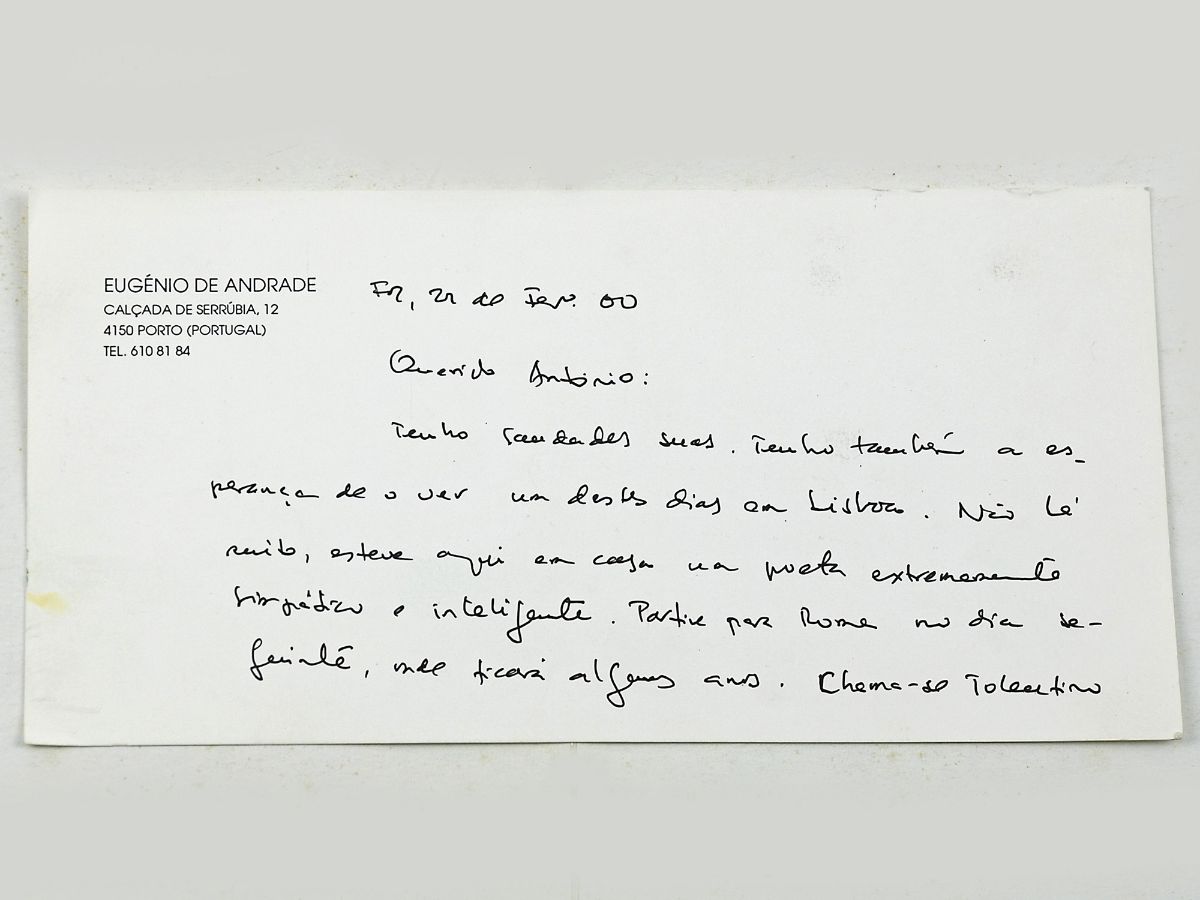 EUGÉNIO DE ANDRADE
CALÇADA DE SERRÚBIA, 12
4150 PORTO (PORTUGAL)
TEL. 610 81 84
Foz, de Fev. 00
Querido António:
Tenho saudades suas. Tenho também a es-
perança de o ver um destes dias em Lisboa. Não há
muito, esteve aqui em casa um poeta extremamente
simpático e inteligente. Partiu para Roma no dia se-
guinte, onde ficará alguns anos. Chama-se Tolentino